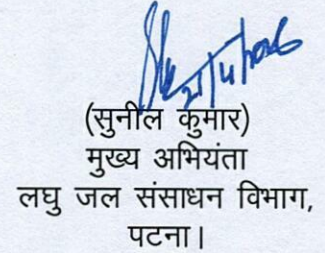 (सुनील कुमार)
मुख्य अभियंता
लघु जल संसाधन विभाग,
पटना।